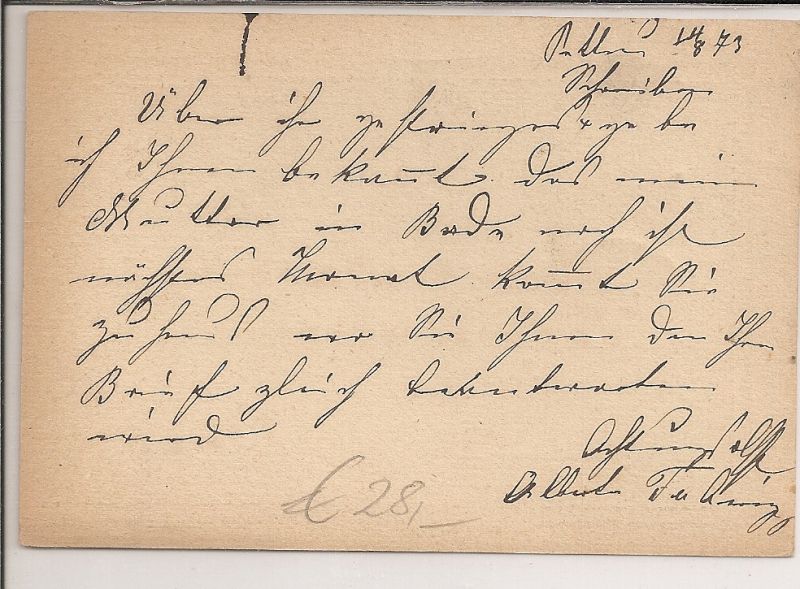 14/8 73
Schreiben
Über ihr gestriges gebe
ich Ihnen bekannt das meine
Mutter in Bade noch ist
nächstes Monat kommt Sie
zuhaus wo Sie Ihnen den Ihren
Brief gleich beantworten
wird
Achtungsvollst
Albert
€ 28,-